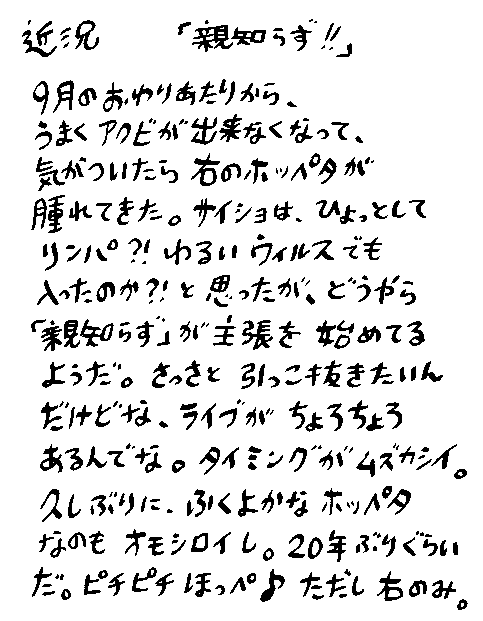 近況 「親知らず!!」
9月のおわりあたりから、
うまくアクビが出来なくなって、
気がついたら右のホッペタが
腫れてきた。サイショは、ひょっとして
リンパ?!わるいウィルスでも
入ったのか?!と思ったが、どうやら
「親知らず」が主張を始めてる
ようだ。さっさと引っこ抜きたいん
だけどな、ライブがちょろちょろ
あるんでな。タイミングがムズカシイ。
久しぶりに、ふくよかなホッペタ
なのもオモシロイし。20年ぶりぐらい
だ。ピチピチほっぺ♪ただし右のみ。